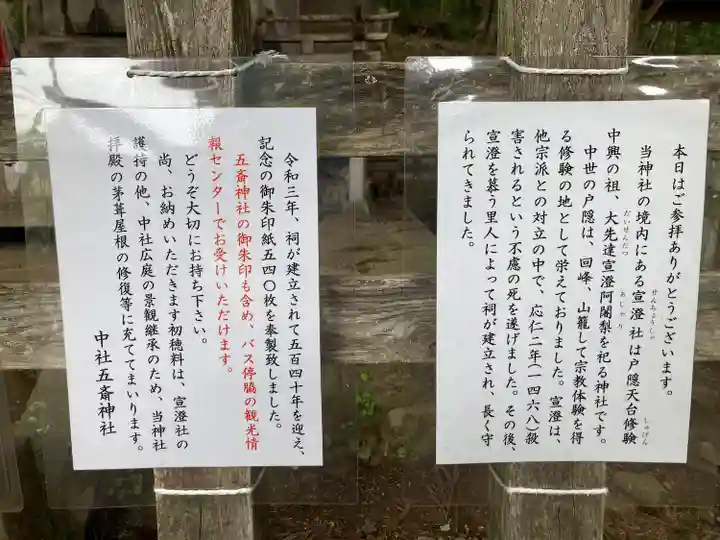 本日はご参拝ありがとうございます。
当神社の境内にある宣澄社は戸隠天台修験
せんちょうしゃ
しゅげん
中興の祖、大先達宣澄阿闍梨を祀る神社です。
だいせんだつ
あじゃり
中世の戸隠は、回峰、山籠して宗教体験を得
る修験の地として栄えておりました。宣澄は、
他宗派との対立の中で、応仁二年(一四六八)殺
害されるという不慮の死を遂げました。その後、
宣澄を慕う里人によって祠が建立され、長く守
られてきました。
令和三年、祠が建立されて五百四十年を迎え、
記念の御朱印紙五四〇枚を奉製致しました。
五斎神社の御朱印も含め、バス停脇の観光情
報センターでお受けいただけます。
どうぞ大切にお持ち下さい。
尚、お納めいただきます初穂料は、宣澄社の
護持の他、中社広庭の景観継承のため、当神社
拝殿の茅葺屋根の修復等に充ててまいります。
中社五斎神社